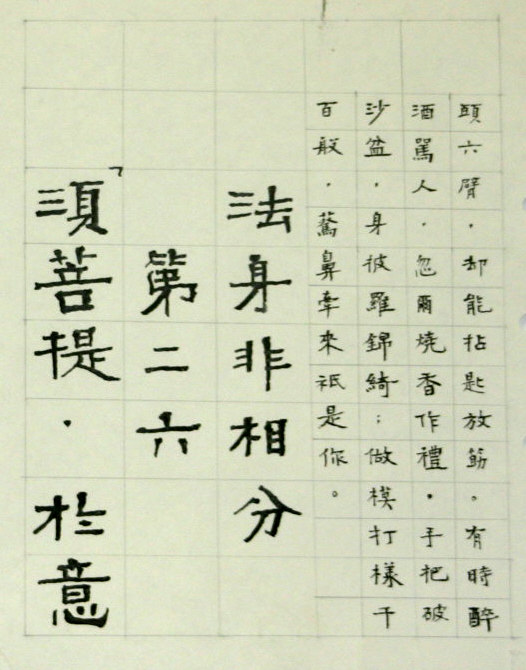 頭六臂．却能拈匙放筯。有時醉
酒罵人．忽爾燒香作禮．手把破
沙盆．身披羅錦綺；做模打樣千
百般．驀鼻牽來衹是你。
法身非相分
第二六
「須菩提．於意